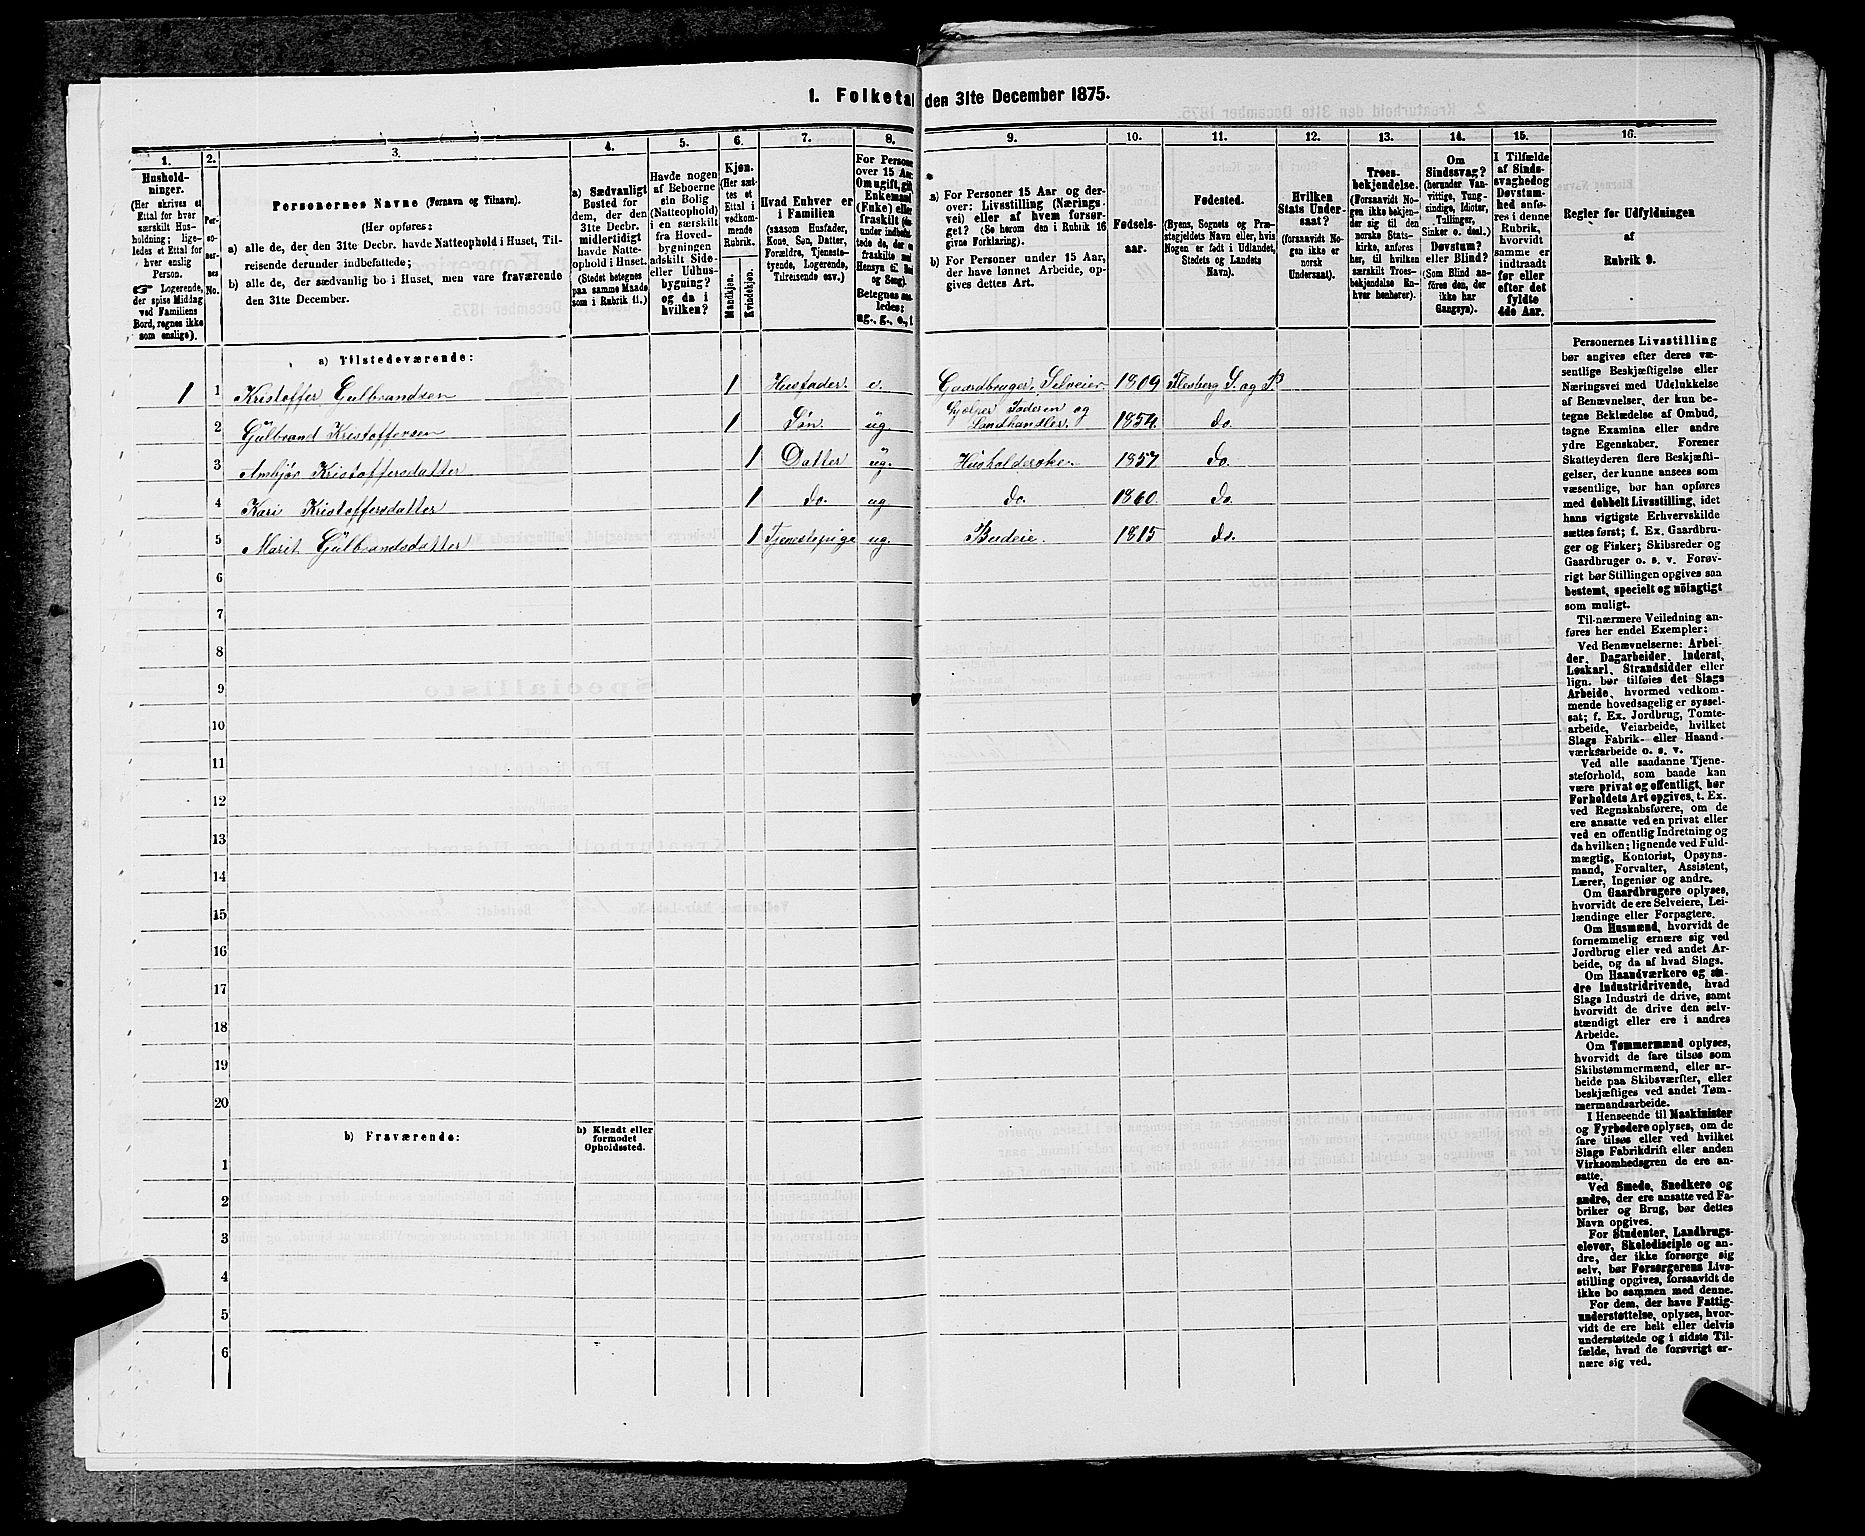 1. Folketal den 31te December 1875.
1. 2. 3. 4. 5. 6. 7. 8. 9. 10. 11. 12. 13. 14. 15. 16.
Hushold-
ninger.
(Her skrives et
Ettal for hver
særskilt Hus-
holdning; lige-
ledes et Ettal for
hver enslig
Person.
☞ Logerende,
der spise Middag
ved Familiens
Bord, regnes ikke
som enslige).
Per-
so-
ner-
nes
No.
Personernes Navne (Fornavn og Tilnavn).
(Her opføres:
a) alle de, der den 31te Decbr. havde Natteophold i Huset, Til-
reisende derunder indbefattede;
b) alle de, der sædvanlig bo i Huset, men vare fraværende
den 31te December.
a) Sædvanligt
Bosted for
dem, der den
31te Decbr.
midlertidigt
havde Natte-
ophold i Huset.
(Stedet betegnes
paa samme Maade
som i Rubrik 11.)
Havde nogen
af Beboerne
sin Bolig
(Natteophold)
i en særskilt
fra Hoved-
bygningen
adskilt Side-
eller Udhus-
bygning?
og da i
hvilken?
Kjøn.
(Her sæt-
tes et
Ettal i
vedkom-
mende
Rubrik.
Mandkjøn.
Kvindekjøn.
Hvad Enhver er
i Familien
(saasom Husfader,
Kone, Søn, Datter,
Forældre, Tjeneste-
tyende, Logerende,
Tilreisende osv.)
For Persone
over 15 Aar
Om ugift, gift
Enkemand
(Enke) eller
fraskilt
Betegnes saa-
ledes:
ug., g., e., f.
a) For Personer 15 Aar og der-
over: Livsstilling (Nærings-
vei) eller af hvem forsør-
get? (Se herom den i Rubrik 16
givne Forklaring).
b) For Personer under 15 Aar,
der have lønnet Arbeide, op-
gives dettes Art.
Fødsels-
aar.
Fødested.
(Byens, Sognets og Præ-
stegjeldets Navn eller, hvis
Nogen er født i Udlandet,
Stedets og Landets
Navn).
Hvilken
Stats Under-
saat?
(forsaavidt No-
gen ikke er
norsk
Undersaat).
Troes-
bekjendelse.
(Forsaavidt No-
gen ikke bekjen-
der sig til den
norske Stats-
kirke, anføres
her, til hvilken
særskilt Troes-
bekjendelse En-
hver henhører).
Om
Sindssvag?
(herunder Van-
vittige, Tung-
sindige, Idioter,
Tullinger,
Sinker o. desl.)
Døvstum?
eller Blind?
(Som Blind an-
føres den, der
ikke har
Gangsyn).
I Tilfælde
af Sinds-
svaghed og
Døvstum-
hed anfø-
res i denne
Rubrik,
hvorvidt
samme er
indtraadt
før eller
efter det
fyldte
4de Aar.
Regler for Udfyldningen
af
Rubrik 9.
a) Tilstedeværende:
1 1 Kristoffer Gulbrandsen 1 Husfader. e. Gaardbruger, Selveier. 1809 Flesberg S. og P
2 Gulbrand Kristoffersen 1 Søn. ug Hjælper Faderen og
Landhandler. 1854. do.
3 Ambjør Kristoffersdatter 1 Datter ug. Husholderske. 1857 do.
4 Kari Kristoffersdatter 1 do. ug do. 1860 do.
5 Marit Gulbrandsdatter 1 Tjenestepige ug. Budeie. 1815 do.
6
7
8
9
10
11
12
13
14
15
16
17
18
19
20
b) Fraværende:
b) Kjendt eller
formodet
Opholdssted.
1
2
3
4
5
6
Personernes Livsstilling
bør angives efter deres væ-
sentlige Beskjæftigelse eller
Næringsvei med Udelukkelse
af Benævnelser, der kun be-
tegne Beklædelse af Ombud,
tagne Examina eller andre
ydre Egenskaber. Forener
Skatteyderen flere Beskjæfti-
gelser, der kunne ansees som
væsentlige, bør han opføres
med dobbelt Livsstilling, idet
hans vigtigste Erhvervskilde
sættes først; f. Ex. Gaardbru-
ger og Fisker; Skibsreder og
Gaardbruger o. s. v. Forøv-
rigt bør Stillingen opgives saa
bestemt, specielt og nöiagtigt
som muligt.
Til nærmere Veiledning an-
føres her endel Exempler:
Ved Benævnelserne: Arbei-
der, Dagarbeider, Inderst,
Løskarl, Strandsidder eller
lign. bør tilføies det Slags
Arbeide, hvormed vedkom-
mende hovedsagelig er syssel-
sat; f. Ex. Jordbrug, Tomte-
arbeide, Veiarbeide, hvilket
Slags Fabrik- eller Haand-
værksarbeide o. s. v.
Ved alle saadanne Tjene-
steforhold, som baade kan
være privat og offentligt, bør
Forholdets Art opgives, t. Ex.
ved Regnskabsførere, om de
ere ansatte ved en privat eller
ved en offentlig Indretning og
da hvilken; lignende ved Fuld-
mægtig, Kontorist, Opsyns-
mand, Forvalter, Assistent,
Lærer, Ingeniør og andre.
Om Gaardbrugere oplyses,
hvorvidt de ere Selveiere, Lei-
lændinge eller Forpagtere.
Om Husmænd, hvorvidt de
fornemmelig ernære sig ved
Jordbrug eller ved andet Ar-
beide, og da af hvad Slags.
Om Haandværkere og an-
dre Industridrivende, hvad
Slags Industri de drive, samt
hvorvidt de drive den selv-
stændigt eller ere i andres
Arbeide.
Om Tømmermænd oplyses,
hvorvidt de fare tilsøs som
Skibstømmermænd, eller ar-
beide paa Skibsværfter, eller
beskjæftiges ved andet Tøm-
mermandsarbeide.
I Henseende til Maskinister
og Fyrbødere oplyses, om de
fare tilsøs eller ved hvilket
Slags Fabrikdrift eller anden
Virksomhedsgren de ere an-
satte.
Ved Smede, Snedkere og
andre, der ere ansatte ved Fa-
briker og Brug, bør dettes
Navn opgives.
For Studenter, Landbrugs-
elever, Skoledisciple og an-
dre, der ikke forsørge sig
selv, bør Forsørgerens Livs-
stilling opgives, forsaavidt de
ikke bo sammen med denne.
For dem, der have Fattig-
understøttelse, oplyses, hvor-
vidt de ere helt eller delvis
understøttede og i sidste Til-
fælde, hvad de forøvrigt er-
nære sig ved.